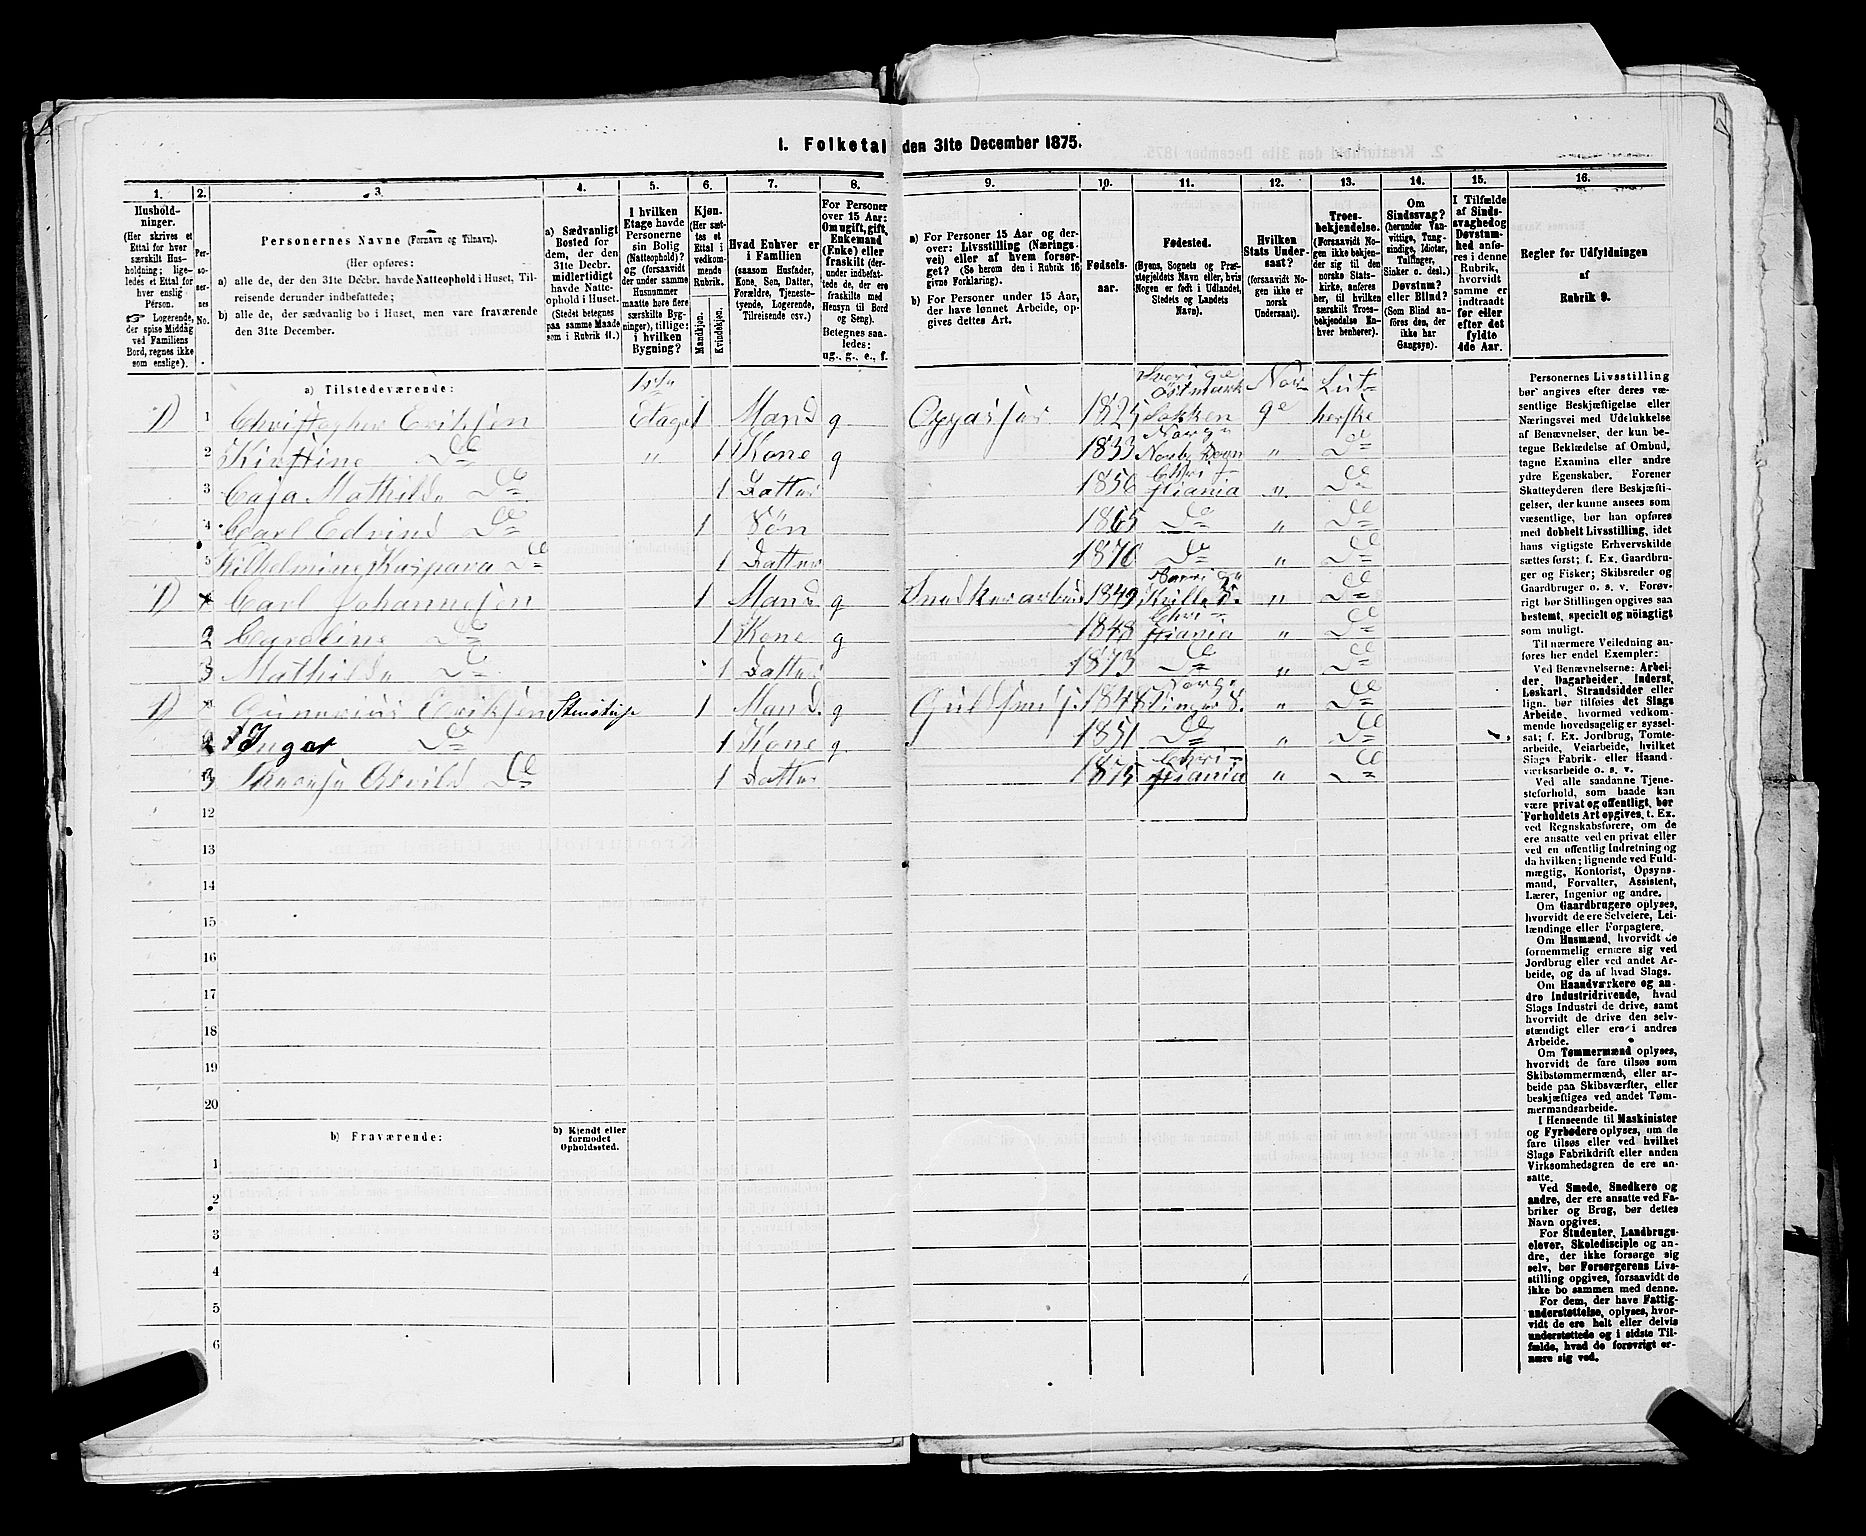 1. Folketal den 31te December 1875.
1. 2. 3. 4. 5. 6. 7. 8. 9. 10. 11. 12. 13. 14. 15. 16.
Hushold-
ninger.
(Her skrives et
Ettal for hver
særskilt Hus-
holdning; lige-
ledes et Ettal for
hver enslig
Person.
☞ Logerende,
der spise Middag
ved Familiens
Bord, regnes ikke
som enslige).
Per-
so-
ner-
nes
No.
Personernes Navne (Fornavn og Tilnavn).
(Her opføres:
a) alle de, der den 31te Decbr. havde Natteophold i Huset, Til-
reisende derunder indbefattede;
b) alle de, der sædvanlig bo i Huset, men vare fraværende
den 31te December.
a) Sædvanligt
Bosted for
dem, der den
31te Decbr.
midlertidigt
havde Natte-
ophold i Huset.
(Stedet betegnes
paa samme Maade
som i Rubrik 11.)
I hvilken
Etage havde
Personerne
sin Bolig
(Natteophold)?
og (forsaavidt
der under samme
Husnummer
maatte høre flere
særskilte Byg-
ninger), tillige:
i hvilken
Bygning?
Kjøn.
(Her sæt-
tes et
Ettal i
vedkom-
mende
Rubrik.
Mandkjøn.
Kvindekjøn.
Hvad Enhver er
i Familien
(saasom Husfader,
Kone, Søn, Datter,
Forældre, Tjeneste-
tyende, Logerende,
Tilreisende csv.)
For Personer
over 15 Aar:
Om ugift, gift,
Enkemand
(Enke) eller
fraskilt (der-
under indbefat-
tede de, der ere
fraskilte med
Hensyn til Bord
og Seng).
Betegnes saa-
ledes:
ug., g., e., f.
a) For Personer 15 Aar og der-
over: Livsstilling (Nærings-
vei) eller af hvem forsør-
get? (Se herom den i Rubrik 16
givne Forklaring).
b) For Personer under 15 Aar,
der have lønnet Arbeide, op-
gives dettes Art.
Fødsels-
aar.
Fødested.
(Byens, Sognets og Præ-
stegjeldets Navn eller, hvis
Nogen er født i Udlandet,
Stedets og Landets
Navn).
Hvilken
Stats Under-
saat?
(forsaavidt No-
gen ikke er
norsk
Undersaat).
Troes-
bekjendelse.
(Forsaavidt No-
gen ikke bekjen-
der sig til den
norske Stats-
kirke, anføres
her, til hvilken
særskilt Troes-
bekjendelse En-
hver henhører).
Om
Sindssvag?
(herunder Van-
vittige, Tung-
sindige, Idioter,
Tullinger,
Sinker o. desl.)
Døvstum?
eller Blind?
(Som Blind an-
føres den, der
ikke har
Gangsyn).
I Tilfælde
af Sinds-
svaghed og
Døvstum-
hed anfø-
res i denne
Rubrik,
hvorvidt
samme er
indtraadt
før eller
efter det
fyldte
4de Aar.
Regler for Udfyldningen
af
Rubrik 9.
a) Tilstedeværende:
1) 1 Christopher Eriksen 1ste Etage 1 Mand g 1825 Sverige Østmark Sokken Norge Lutherske
2 Kirstine Do " 1 Kone g 1833 Norge " Do
3 Caja Mathilde Do 1 Datter 1850 Christiania " Do
4 Carl Edvind Do 1 Søn 1865 Do " Do
5 Vilhelmine Kaspara Do 1 Datter 1870 Do " Do
1) Carl Johannesen 1 Mand g Snedkerarbeid 1849 Sverige Kville S. " Do
2 Caroline Do 1 Kone g 1848 Christiania " Do
3 Mathilde Do 1 Datter 1873 Do " Do
1) Gunerius Eriksen 1 Mand g Guldsmed 1848 Norge " Do
2 Inger Do 1 Kone g 1851 Do " Do
3 Do 1 Datter 1875 Christiania " Do
12
13
14
15
16
17
18
19
20
b) Fraværende:
b) Kjendt eller
formodet
Opholdssted.
1
2
3
4
5
6
Personernes Livsstilling
bør angives efter deres væ-
sentlige Beskjæftigelse eller
Næringsvei med Udelukkelse
af Benævnelser, der kun be-
tegne Beklædelse af Ombud,
tagne Examina eller andre
ydre Egenskaber. Forener
Skatteyderen flere Beskjæfti-
gelser, der kunne ansees som
væsentlige, bør han opføres
med dobbelt Livsstilling, idet
hans vigtigste Erhvervskilde
sættes først; f. Ex. Gaardbru-
ger og Fisker; Skibsreder og
Gaardbruger o. s. v. Forøv-
rigt bør Stillingen opgives saa
bestemt, specielt og nøiagtigt
som muligt.
Til nærmere Veiledning an-
føres her endel Exempler:
Ved Benævnelserne: Arbei-
der, Dagarbeider, Inderst,
Løskarl, Strandsidder eller
lign. bør tilføies det Slags
Arbeide, hvormed vedkom-
mende hovedsagelig er syssel-
sat; f. Ex. Jordbrug, Tomte-
arbeide, Veiarbeide, hvilket
Slags Fabrik- eller Haand-
værksarbeide o. s. v.
Ved alle saadanne Tjene-
steforhold, som baade kan
være privat og offentligt, bør
Forholdets Art opgives, t. Ex.
ved Regnskabsførere, om de
ere ansatte ved en privat eller
ved en offentlig Indretning og
da hvilken; lignende ved Fuld-
mægtig, Kontorist, Opsyns-
mand, Forvalter, Assistent,
Lærer, Ingeniør og andre.
Om Gaardbrugere oplyses,
hvorvidt de ere Selveiere, Lei-
lændinge eller Forpagtere.
Om Husmænd, hvorvidt de
fornemmelig ernære sig ved
Jordbrug eller ved andet Ar-
beide, og da af hvad Slags.
Om Haandværkere og an-
dre Industridrivende, hvad
Slags Industri de drive, samt
hvorvidt de drive den selv-
stændigt eller ere i andres
Arbeide.
Om Tømmermænd oplyses,
hvorvidt de fare tilsøs som
Skibstømmermænd, eller ar-
beide paa Skibsværfter, eller
beskjæftiges ved andet Tøm-
mermandsarbeide.
I Henseende til Maskinister
og Fyrbødere oplyses, om de
fare tilsøs eller ved hvilket
Slags Fabrikdrift eller anden
Virksomhedsgren de ere an-
satte.
Ved Smede, Snedkere og
andre, der ere ansatte ved Fa-
briker og Brug, bør dettes
Navn opgives.
For Studenter, Landbrugs-
elever, Skoledisciple og an-
dre, der ikke forsørge sig
selv, bør Forsørgerens Livs-
stilling opgives, forsaavidt de
ikke bo sammen med denne.
For dem, der have Fattig-
understøttelse, oplyses, hvor-
vidt de ere helt eller delvis
understøttede og i sidste Til-
fælde, hvad de forøvrigt er-
nære sig ved.